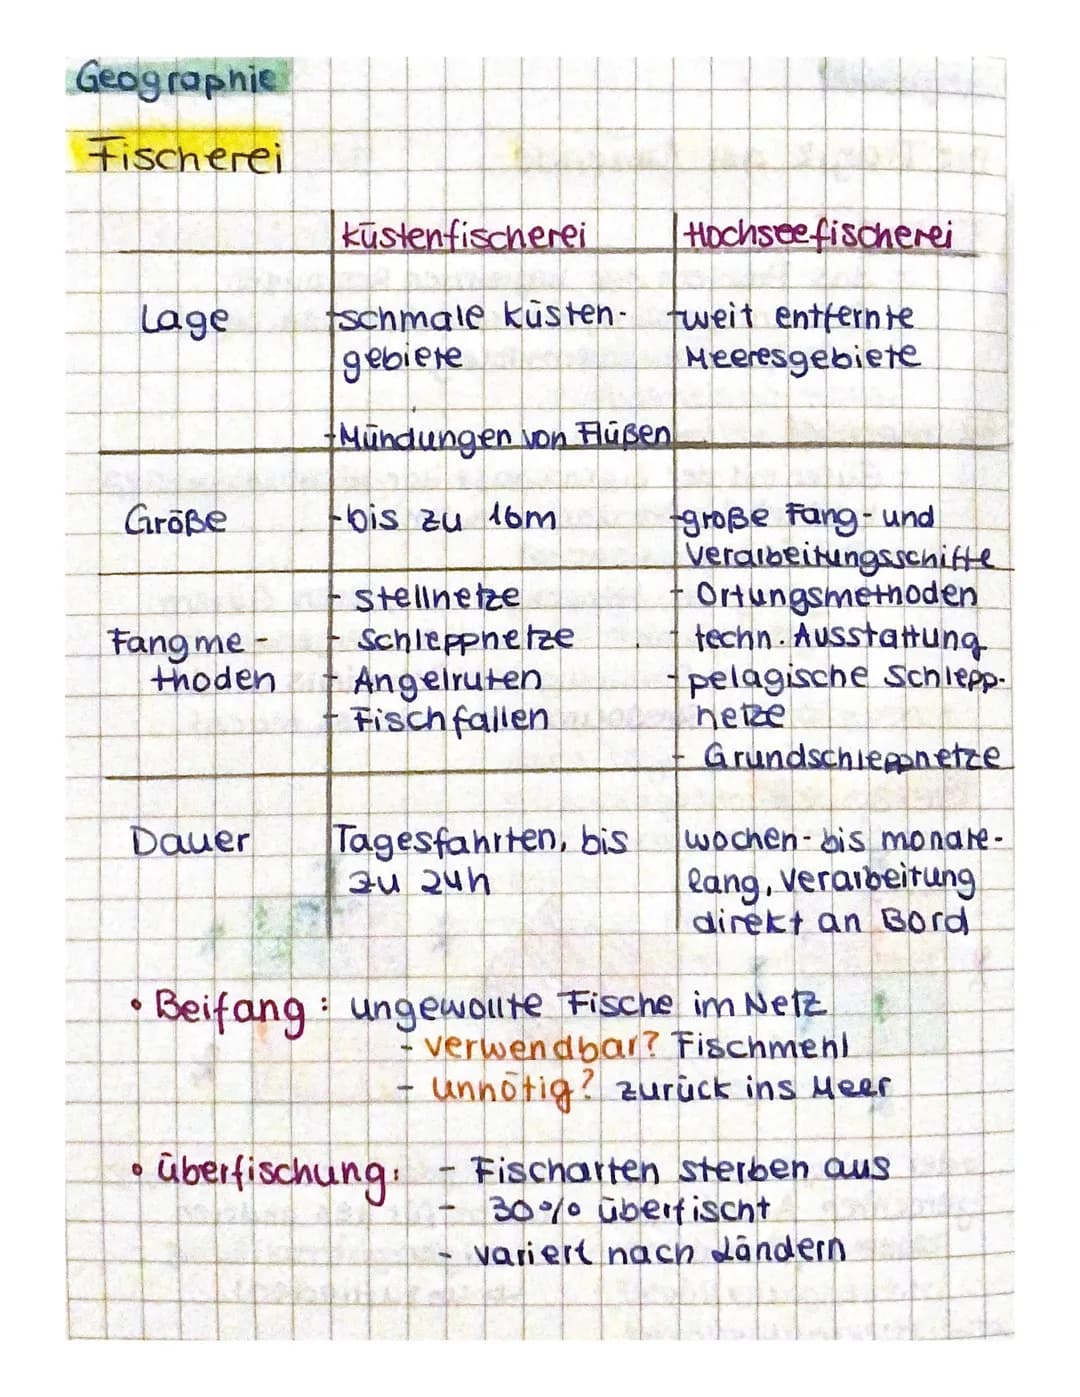 Geographie
Fischerei
Küstenfischerei Hochseefischerei
Lage -schmale Küsten- -weit entfernte
gebiete Meeresgebiete
-Mündungen von Flüßen
Größe -bis zu 16m -große Fang- und
Verarbeitungsschiffe
- Stellnetze - Ortungsmethoden
Fangme- - Schleppnetze - techn. Ausstattung
thoden - Angelruten - pelagische Schlepp-
- Fischfallen netze
- Grundschleppnetze
Dauer Tagesfahrten, bis wochen- bis monate-
zu 24h lang, Verarbeitung
direkt an Bord
• Beifang: ungewollte Fische im Netz
- verwendbar? Fischmehl
- unnötig? zurück ins Meer
• Überfischung: - Fischarten sterben aus
- 30% überfischt
- variiert nach Ländern